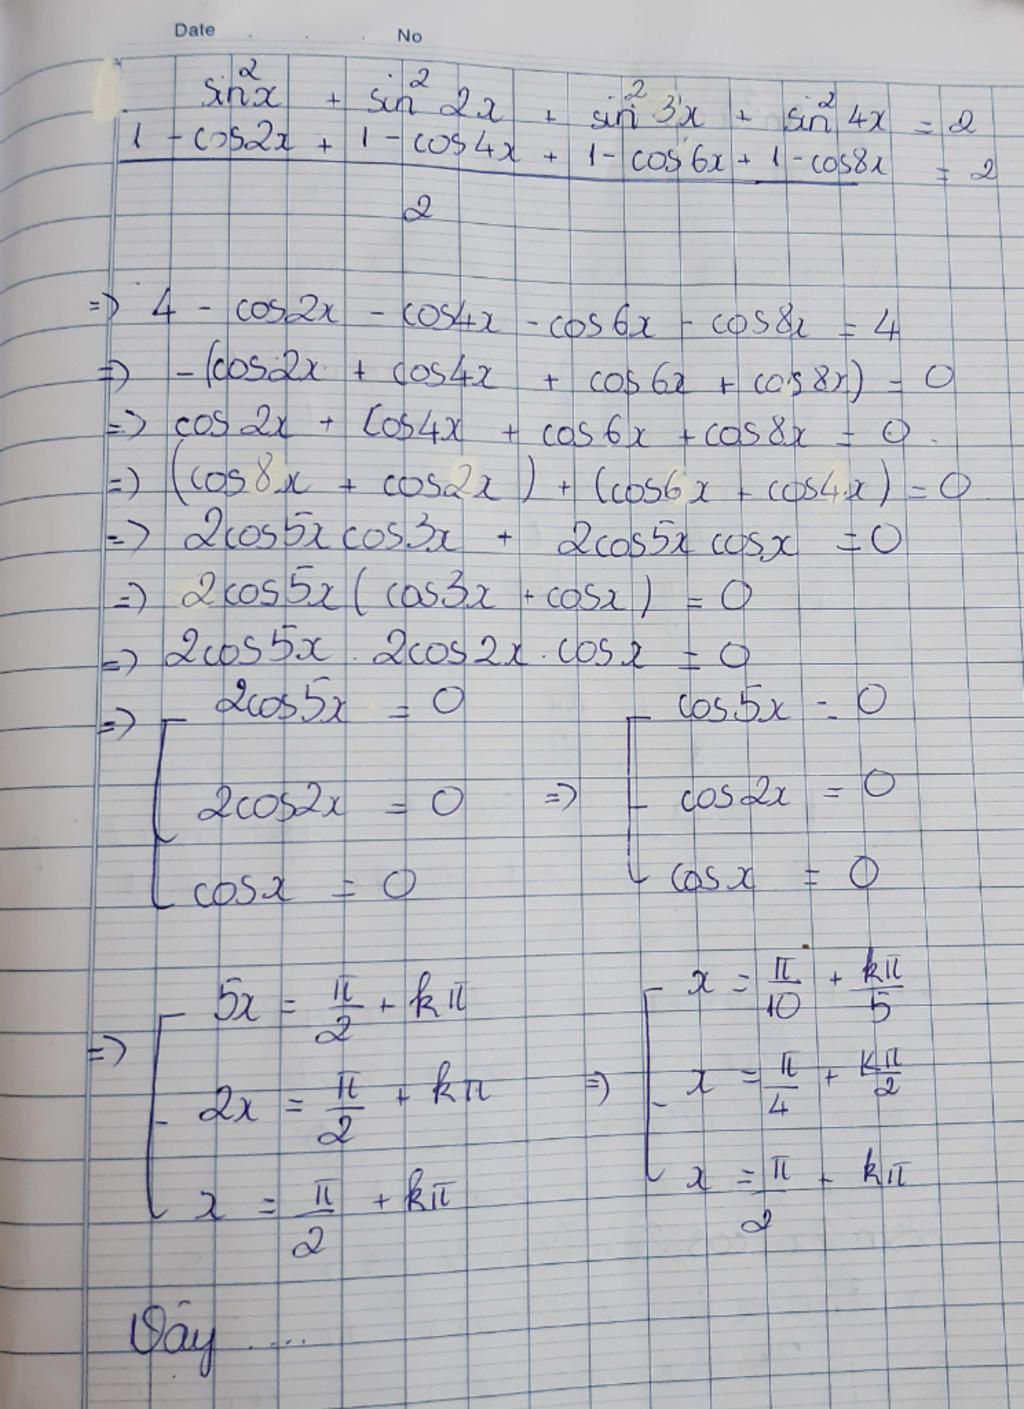 Date . . . No
sin²x + sin²2x + sin²3x + sin²4x = 2
1 - cos2x + 1 - cos4x + 1 - cos6x + 1 - cos8x = 2
2
=> 4 - cos2x - cos4x - cos6x - cos8x = 4
=> -(cos2x + cos4x + cos6x + cos8x) = 0
=> cos2x + cos4x + cos6x + cos8x = 0.
=> (cos8x + cos2x) + (cos6x + cos4x) = 0
=> 2cos5x cos3x + 2cos5x cosx = 0
=> 2cos5x (cos3x + cosx) = 0
=> 2cos5x . 2cos2x . cosx = 0
=> [ 2cos5x = 0 [ cos5x = 0
2cos2x = 0 => cos2x = 0
cosx = 0 cosx = 0
5x = π/2 + kπ x = π/10 + kπ/5
=> [ 2x = π/2 + kπ => [ x = π/4 + kπ/2
x = π/2 + kπ x = π/2 + kπ
Vậy ....